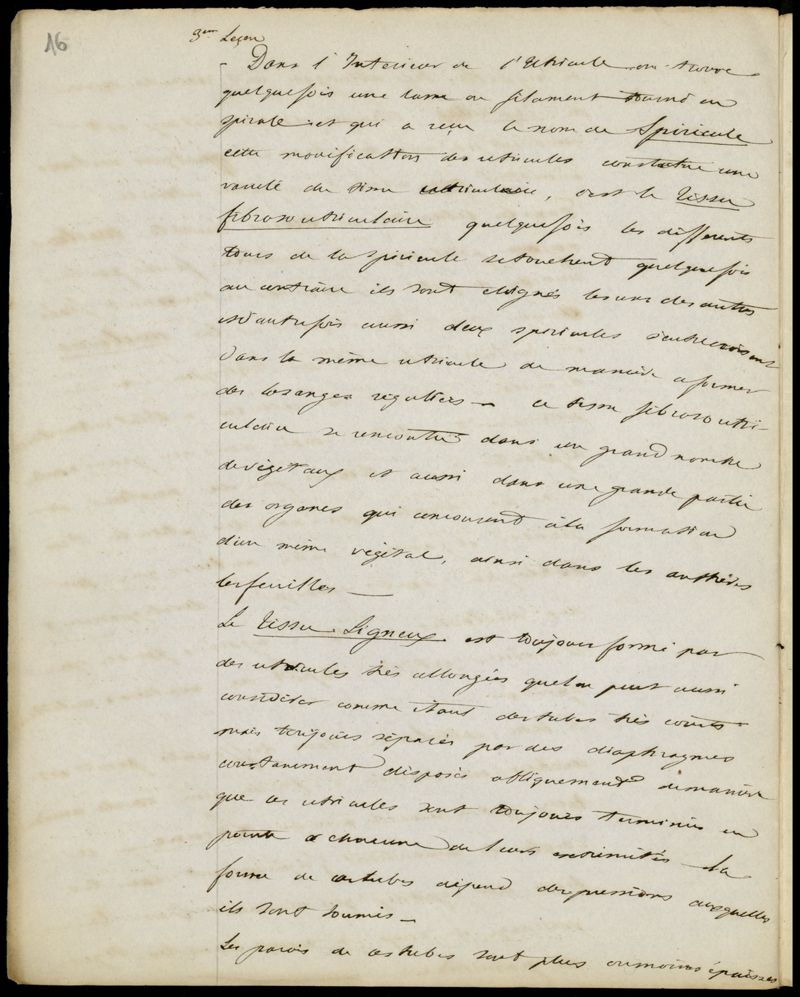 16
3em Leçon
- Dans l'Intérieur de l'Utricule on trouve
quelquefois une lame ou filament tourné en
spirale et qui a reçu le nom de Spiricule
cette modification des utricules constitue une
variété du tissu utriculaire, c'est le tissu
fibroso utriculaire quelquefois les differents
tours de la spiricule se touchent quelquefois
au contraire ils sont eloignés les uns des autres
d'autrefois aussi deux spiricules s'entrecroisent
dans la même utricule de manière a former
des losanges réguliers — ce tissu fibroso utri-
culaire se rencontre dans un grand nombre
de végétaux et aussi dans une grande partie
des organes qui concourent à la formation
d'un même végétal, ainsi dans les anthères
les feuilles —
Le Tissu Ligneux est toujours formé par
des utricules très allongées quel'on peut aussi
considérer comme étant des tubes très courts
mais toujours séparés par des diaphragmes
constamment disposés obliquement de manière
que ces utricules sont toujours terminés en
pointe a chacune de leurs extrémités - La
forme de ces tubes dépend des pressions auxquelles
ils sont soumis —
Les parois de ces tubes sont plus ou moins épaisses